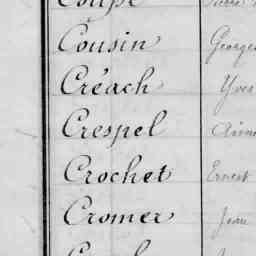 Coupé
Cousin Georges
Créach Yves
Crespel Aimé
Crochet Ernest
Cromer Jean